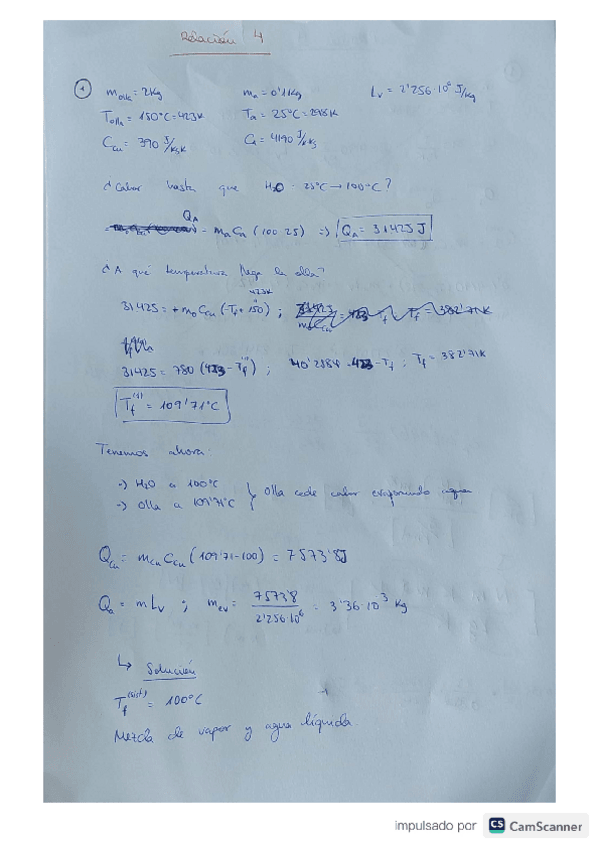 Relación 4
① m olla = 2Kg   m a = 0'1Kg   Lv = 2'256·10⁶ J/Kg
T olla = 150°C = 423K   Ta = 25°C = 298K
Ccu = 390 J/KgK   Ca = 4190 J/KgK
¿Calor hasta que H₂O - 25°C → 100°C?
QA = maCa (100-25) ⇒ QA = 31425 J
¿A qué temperatura llega la olla?
423K
31425 = +moCcu (-Tf + 150) ;
31425 = 780 (423 - Tf) ; 40'2884 = 423 - Tf ; Tf = 382'71K
Tf = 109'71°C
Tenemos ahora:
→ H₂O a 100°C
→ Olla a 109'71°C } Olla cede calor evaporando agua
Qcu = mcu Ccu (109'71-100) = 7573'8J
Qa = m Lv ; mev = 7573'8 / 2'256·10⁶ = 3'36·10³ Kg
↳ Solución
Tf (sist) = 100°C
Mezcla de vapor y agua líquida.
impulsado por CS CamScanner